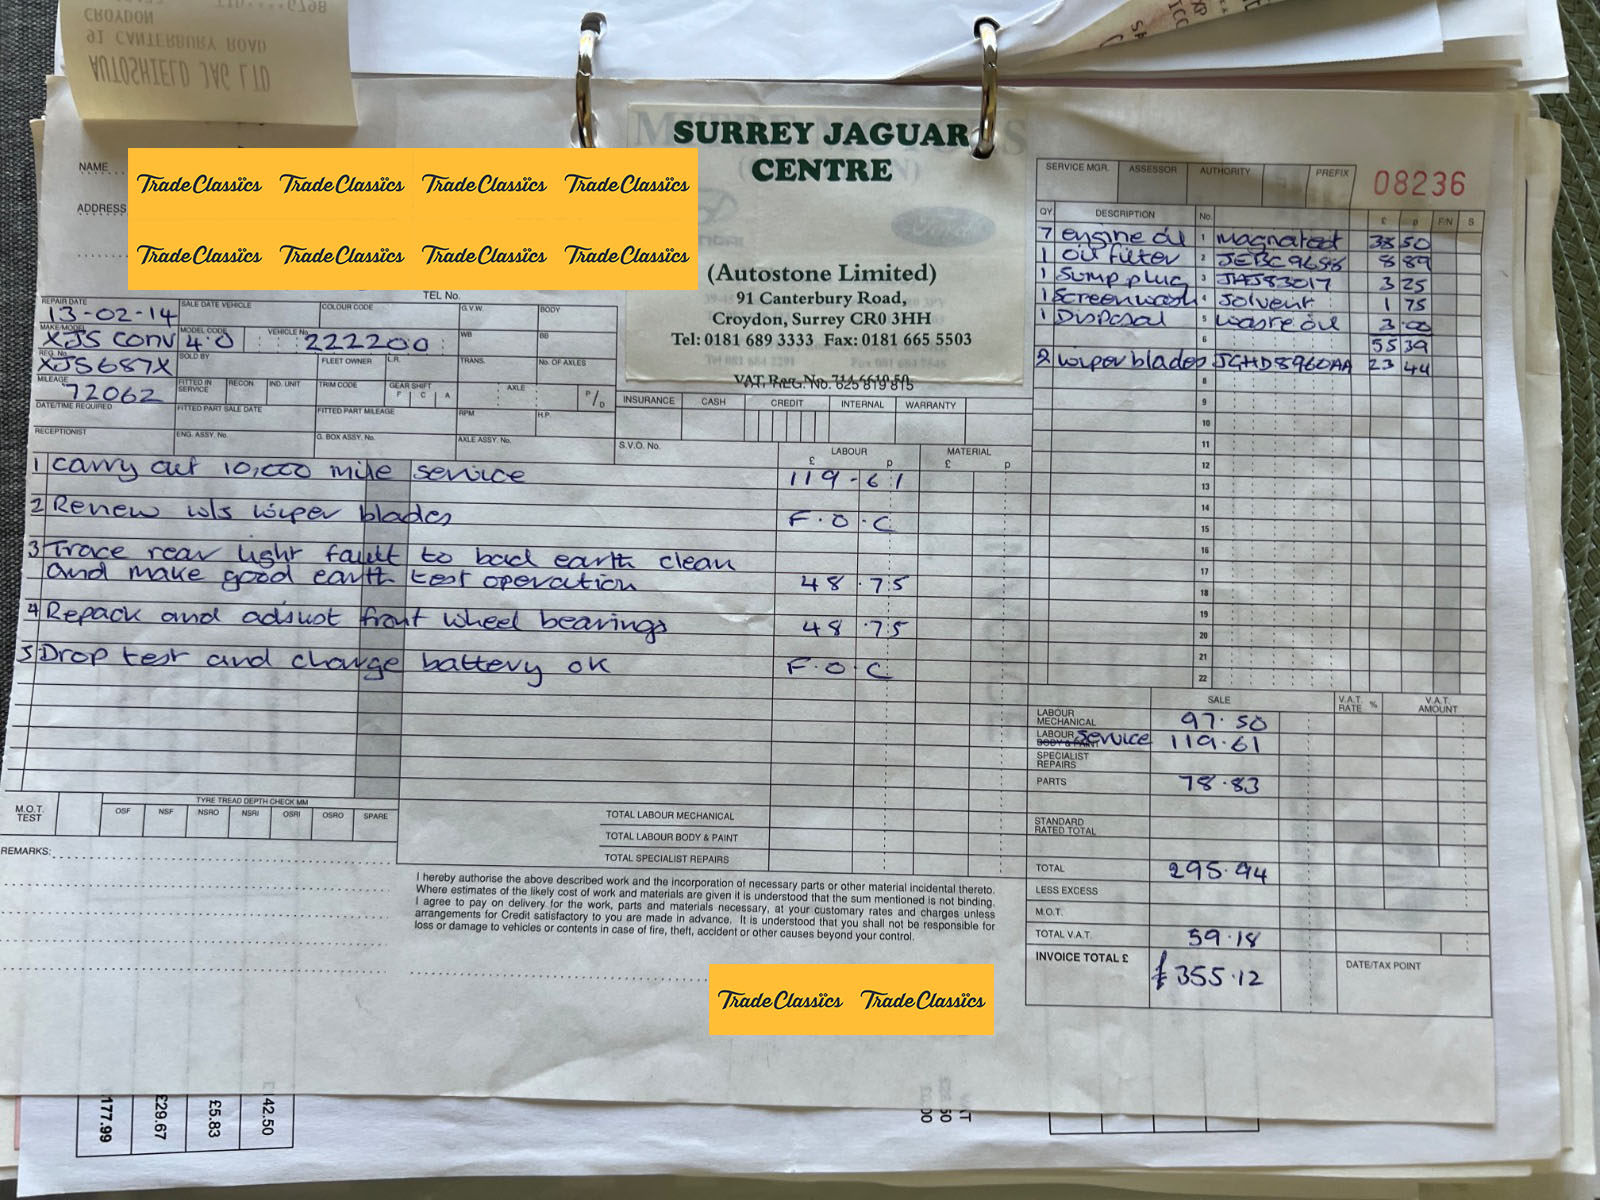 AUTOSHIELD JAG LTD
91 CANTERBURY ROAD
CROYDON
SURREY JAGUAR
CENTRE
(Autostone Limited)
91 Canterbury Road,
Croydon, Surrey CR0 3HH
Tel: 0181 689 3333 Fax: 0181 665 5503
VAT Reg. No.
NAME
ADDRESS
TradeClassics TradeClassics TradeClassics TradeClassics
TradeClassics TradeClassics TradeClassics TradeClassics
TEL No.
REPAIR DATE SALE DATE VEHICLE COLOUR CODE G.V.W. BODY
13-02-14
MAKE/MODEL MODEL CODE VEHICLE No. WB BB
XJS CONV 4.0 222200
REG. No. SOLD BY FLEET OWNER L.R. TRANS. No. OF AXLES
XJS687X
MILEAGE FITTED IN SERVICE RECON. IND. UNIT TRIM CODE GEAR SHIFT F C A AXLE P/D
72062
DATE/TIME REQUIRED FITTED PART SALE DATE FITTED PART MILEAGE RPM H.P.
RECEPTIONIST ENG. ASSY. No. G. BOX ASSY. No. AXLE ASSY. No.
INSURANCE CASH CREDIT INTERNAL WARRANTY
S.V.O. No. LABOUR £ p MATERIAL £ p
1 Carry out 10,000 mile service 119-61
2 Renew w/s wiper blades F.O.C
3 Trace rear light fault to bad earth clean
and make good earth test operation 48.75
4 Repack and adjust front wheel bearings 48.75
5 Drop test and charge battery OK F.O.C
SERVICE MGR. ASSESSOR AUTHORITY PREFIX 08236
QY. DESCRIPTION No. £ p F/N S
7 engine oil 1 magnatect 38 50
1 oil filter 2 JEBC9658 8 89
1 Sump plug 3 JAS83017 3 25
1 Screenwash 4 Solvent 1 75
1 Disposal 5 waste oil 3.00
6 55 39
2 wiper blades JGHD8960AA 23 44
8
9
10
11
12
13
14
15
16
17
18
19
20
21
22
SALE V.A.T. RATE % V.A.T. AMOUNT
LABOUR MECHANICAL 97.50
LABOUR BODY & PAINT Service 119.61
SPECIALIST REPAIRS
PARTS 78.83
STANDARD RATED TOTAL
TOTAL 295.94
LESS EXCESS
M.O.T.
TOTAL V.A.T. 59.18
INVOICE TOTAL £ £355.12 DATE/TAX POINT
M.O.T. TEST TYRE TREAD DEPTH CHECK MM
OSF NSF NSRO NSRI OSRI OSRO SPARE
REMARKS:
TOTAL LABOUR MECHANICAL
TOTAL LABOUR BODY & PAINT
TOTAL SPECIALIST REPAIRS
I hereby authorise the above described work and the incorporation of necessary parts or other material incidental thereto.
Where estimates of the likely cost of work and materials are given it is understood that the sum mentioned is not binding.
I agree to pay on delivery for the work, parts and materials necessary, at your customary rates and charges unless
arrangements for Credit satisfactory to you are made in advance. It is understood that you shall not be responsible for
loss or damage to vehicles or contents in case of fire, theft, accident or other causes beyond your control.
TradeClassics TradeClassics
177.99
£29.67
£5.83
42.50